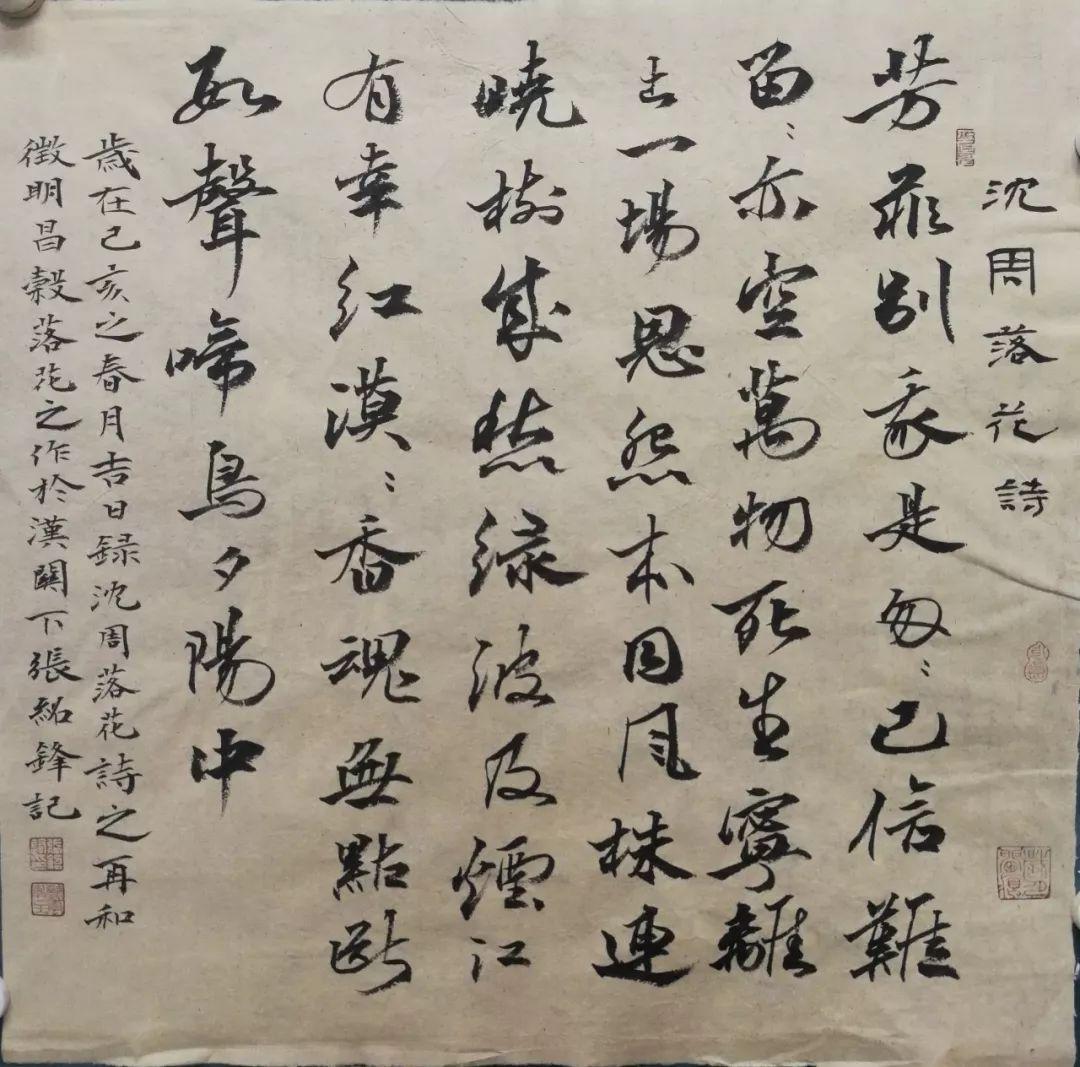 沈周落花詩
芳菲別我是匆〻已信難
留〻亦空萬物死生寧離
土一場恩怨本因風株連
曉樹成愁綠波及煙江
有幸紅漠〻香魂無點斷
數聲啼鳥夕陽中
歲在己亥之春月吉日録沈周落花詩之再和
徵明昌穀落花之作於漢關下張紹鋒記